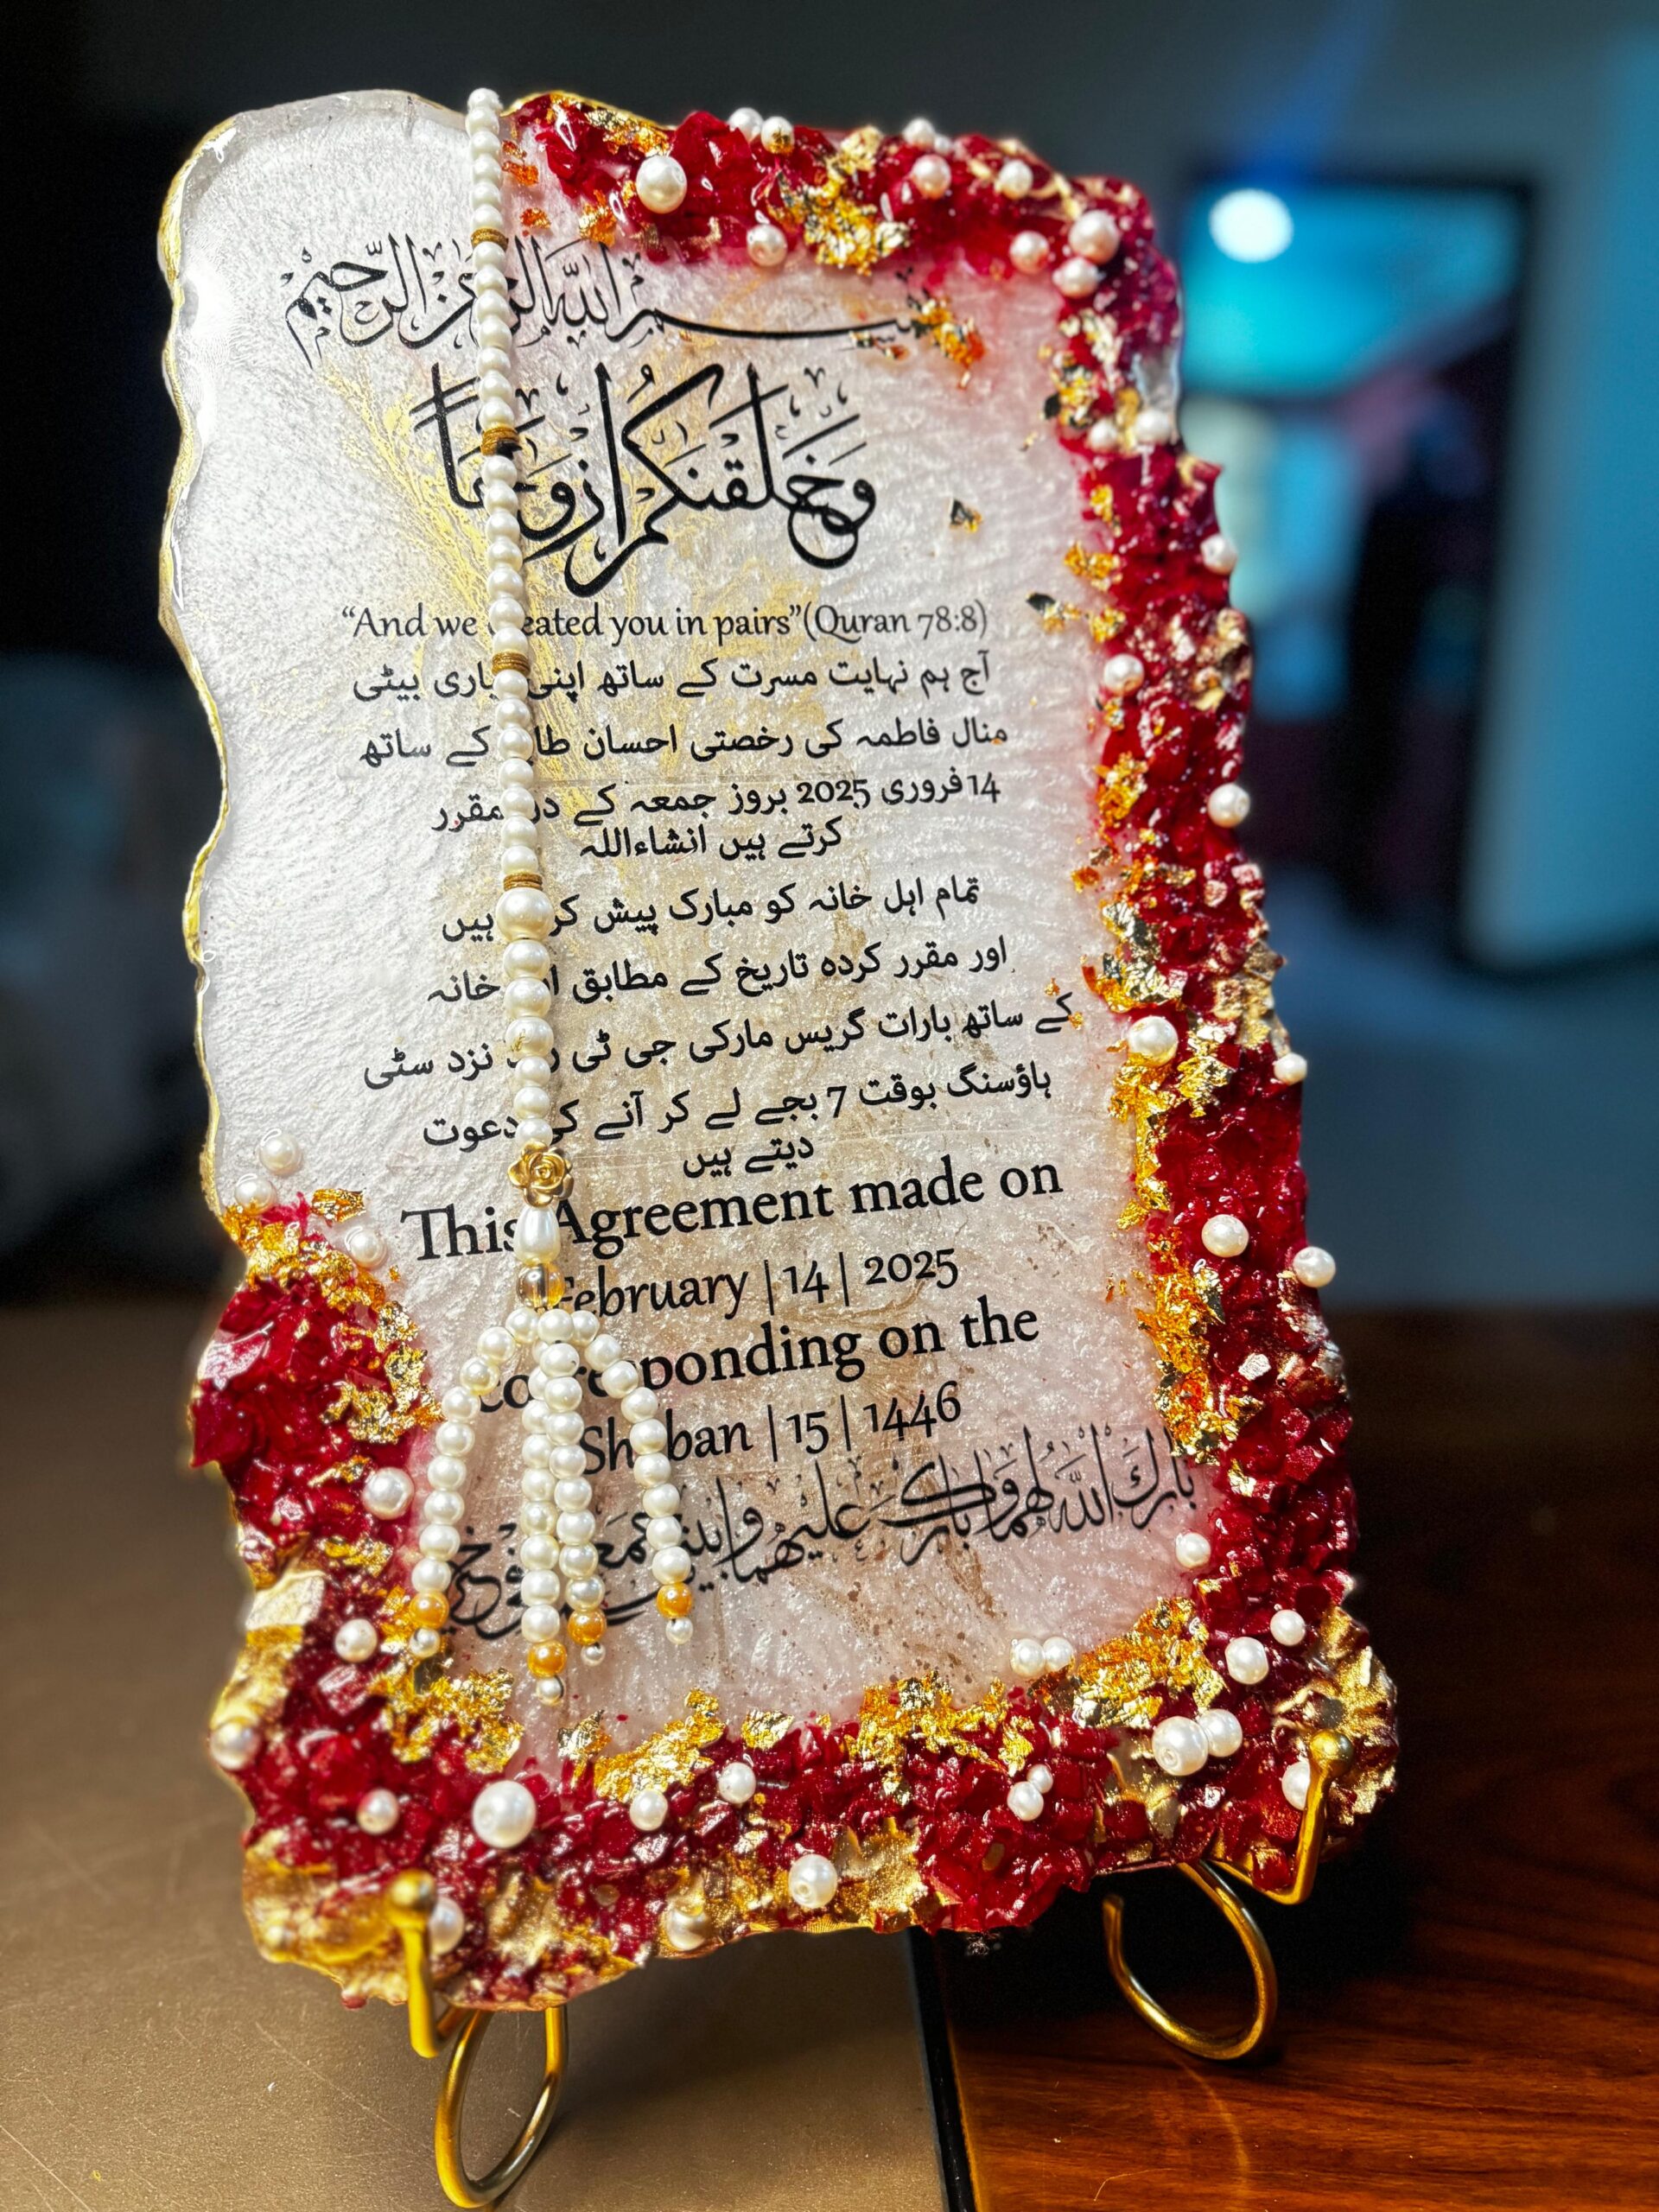 بسم الله الرحمن الرحيم
وَخَلَقْنَكُمْ أَزْوَجًا
“And we created you in pairs”(Quran 78:8)
آج ہم نہایت مسرت کے ساتھ اپنی پیاری بیٹی
منال فاطمہ کی رخصتی احسان کے ساتھ
14 فروری 2025 بروز جمعہ کے مقرر
کرتے ہیں انشاءاللہ
تمام اہل خانہ کو مبارک پیش کرتے ہیں
اور مقرر کردہ تاریخ کے مطابق خانہ
کے ساتھ بارات گریس مارکی جی ٹی روڈ نزد سٹی
ہاؤسنگ بوقت 7 بجے لے کر آنے کی دعوت
دیتے ہیں
This Agreement made on
February | 14 | 2025
corresponding on the
Shaban | 15 | 1446
بارك الله لهما وبارك عليهما وجمع بينهما في خير